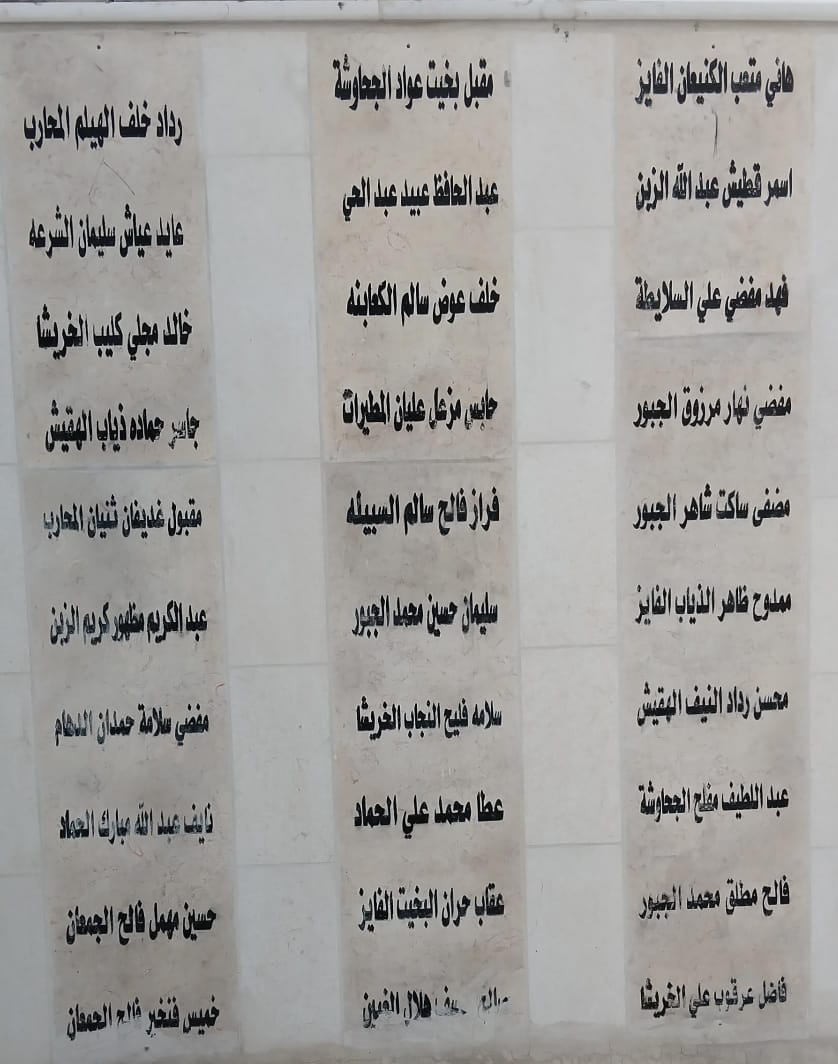 هاني متعب الكنيعان الفايز
اسمر قطيش عبد الله الزبن
فهد مفضي علي السلايطة
مفضي نهار مرزوق الجبور
مضفى ساكت شاهر الجبور
ممدوح ظاهر الذياب الفايز
محسن رداد النيف الهقيش
عبد اللطيف مفلح الجحاوشة
فالح مطلق محمد الجبور
فاضل عرقوب علي الخريشا
مقبل بخيت عواد الجحاوشة
عبد الحافظ عبيد عبد الحي
خلف عوض سالم الكعابنه
حابس مزعل عليان المطيرات
فراز فالح سالم السبيله
سليمان حسين محمد الجبور
سلامه فليح النجاب الخريشا
عطا محمد علي الحماد
عقاب حران البخيت الفايز
هلال الغبين
رداد خلف الهيلم المحارب
عايد عياش سليمان الشرعه
خالد مجلي كليب الخريشا
جاسر حماده ذياب الهقيش
مقبول غديفان ثنيان المحارب
عبد الكريم مظهور كريم الزبن
مفضي سلامة حمدان الدهام
نايف عبد الله مبارك الحماد
حسين مهمل فالح الجمعان
خميس فنخير فالح الجمعان